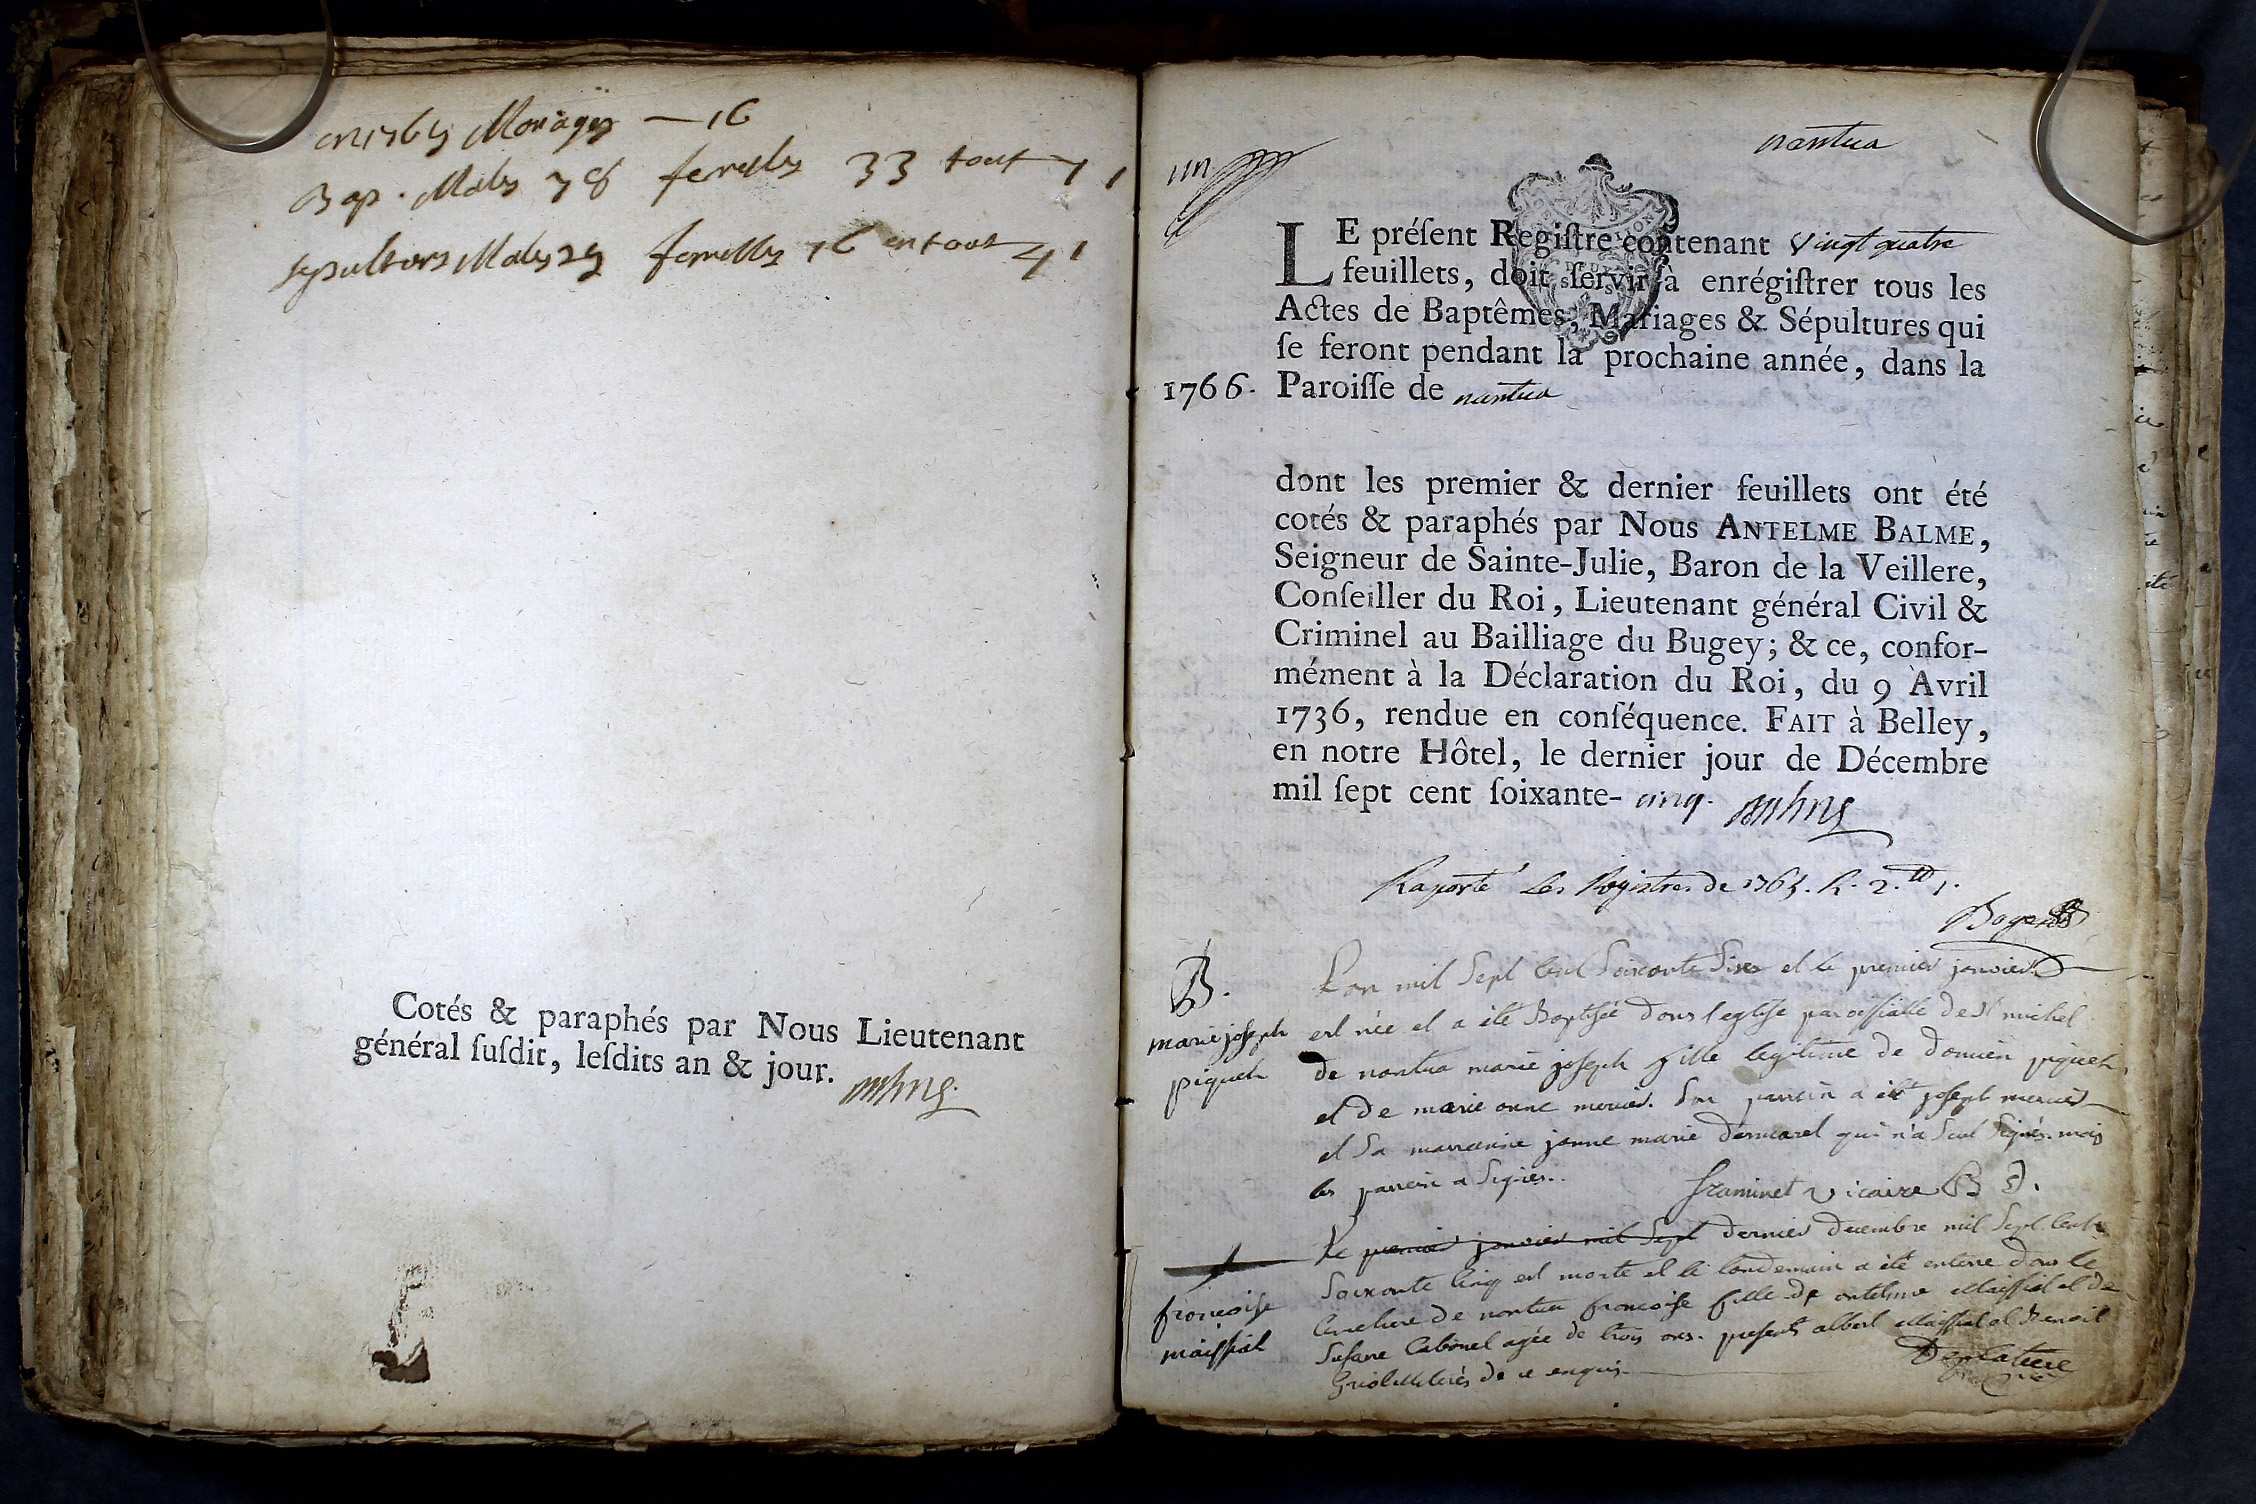 en 1765 Mariages — 16
Bap. Males 38 femelles 33 tout 71
sepultures Males 25 femelles 16 en tout 41
Cotés & paraphés par Nous Lieutenant
général ſuſdit, leſdits an & jour.
nantua
un
LE préſent Regiſtre contenant vingt quatre
feuillets, doit ſervir à enrégiſtrer tous les
Actes de Baptêmes, Mariages & Sépultures qui
ſe feront pendant la prochaine année, dans la
1766. Paroiſſe de nantua
dont les premier & dernier feuillets ont été
cotés & paraphés par Nous ANTELME BALME,
Seigneur de Sainte-Julie, Baron de la Veillere,
Conſeiller du Roi, Lieutenant général Civil &
Criminel au Bailliage du Bugey; & ce, confor-
mément à la Déclaration du Roi, du 9 Avril
1736, rendue en conſéquence. FAIT à Belley,
en notre Hôtel, le dernier jour de Décembre
mil ſept cent ſoixante- cinq.
Raporté Les Registres de 1765.
B.
marie joseph
piquet
L'an mil Sept Cent Soixante Sixes et le premier janvier
est née et a été Baptisée dans l'eglise paroissialle de St michel
de nantua marie joseph fille legitime de piquet
et de marie anne mercier. Son parrein a ét joseph mercier
et Sa marreine janne marie qui n'a Sceu Signer. mais
le parrein a Signer.
framinet vicaire
françoise
maissiat
Le premier janvier mil Sept dernier decembre mil Sept Cent
Soixante Cinq est morte et le landemain a été enterré dans le
Cimetiere de nantua francoise fille de antelme Maissiat et de
Susane Cabinet agée de trois ans. presents albert Maissiat et Benoit
de ce enquis
Deplatiere